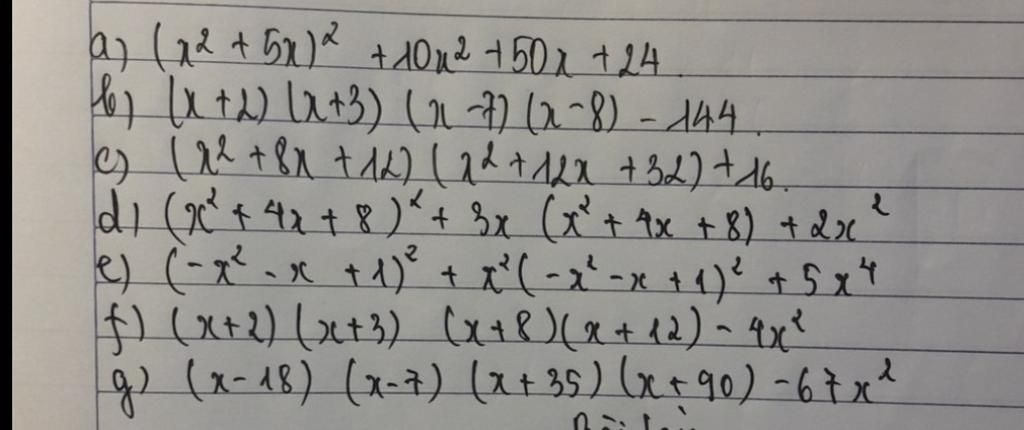 a) (x² + 5x)² + 10x² + 50x + 24
b) (x+2) (x+3) (x-7) (x-8) - 144.
c) (x² + 8x + 12) (x² + 12x + 32) + 16.
d) (x² + 4x + 8)² + 3x (x² + 4x + 8) + 2x²
e) (-x² - x + 1)² + x² (-x² - x + 1)² + 5x⁴
f) (x+2) (x+3) (x+8) (x + 12) - 4x²
g) (x-18) (x-7) (x + 35) (x + 90) - 67x²